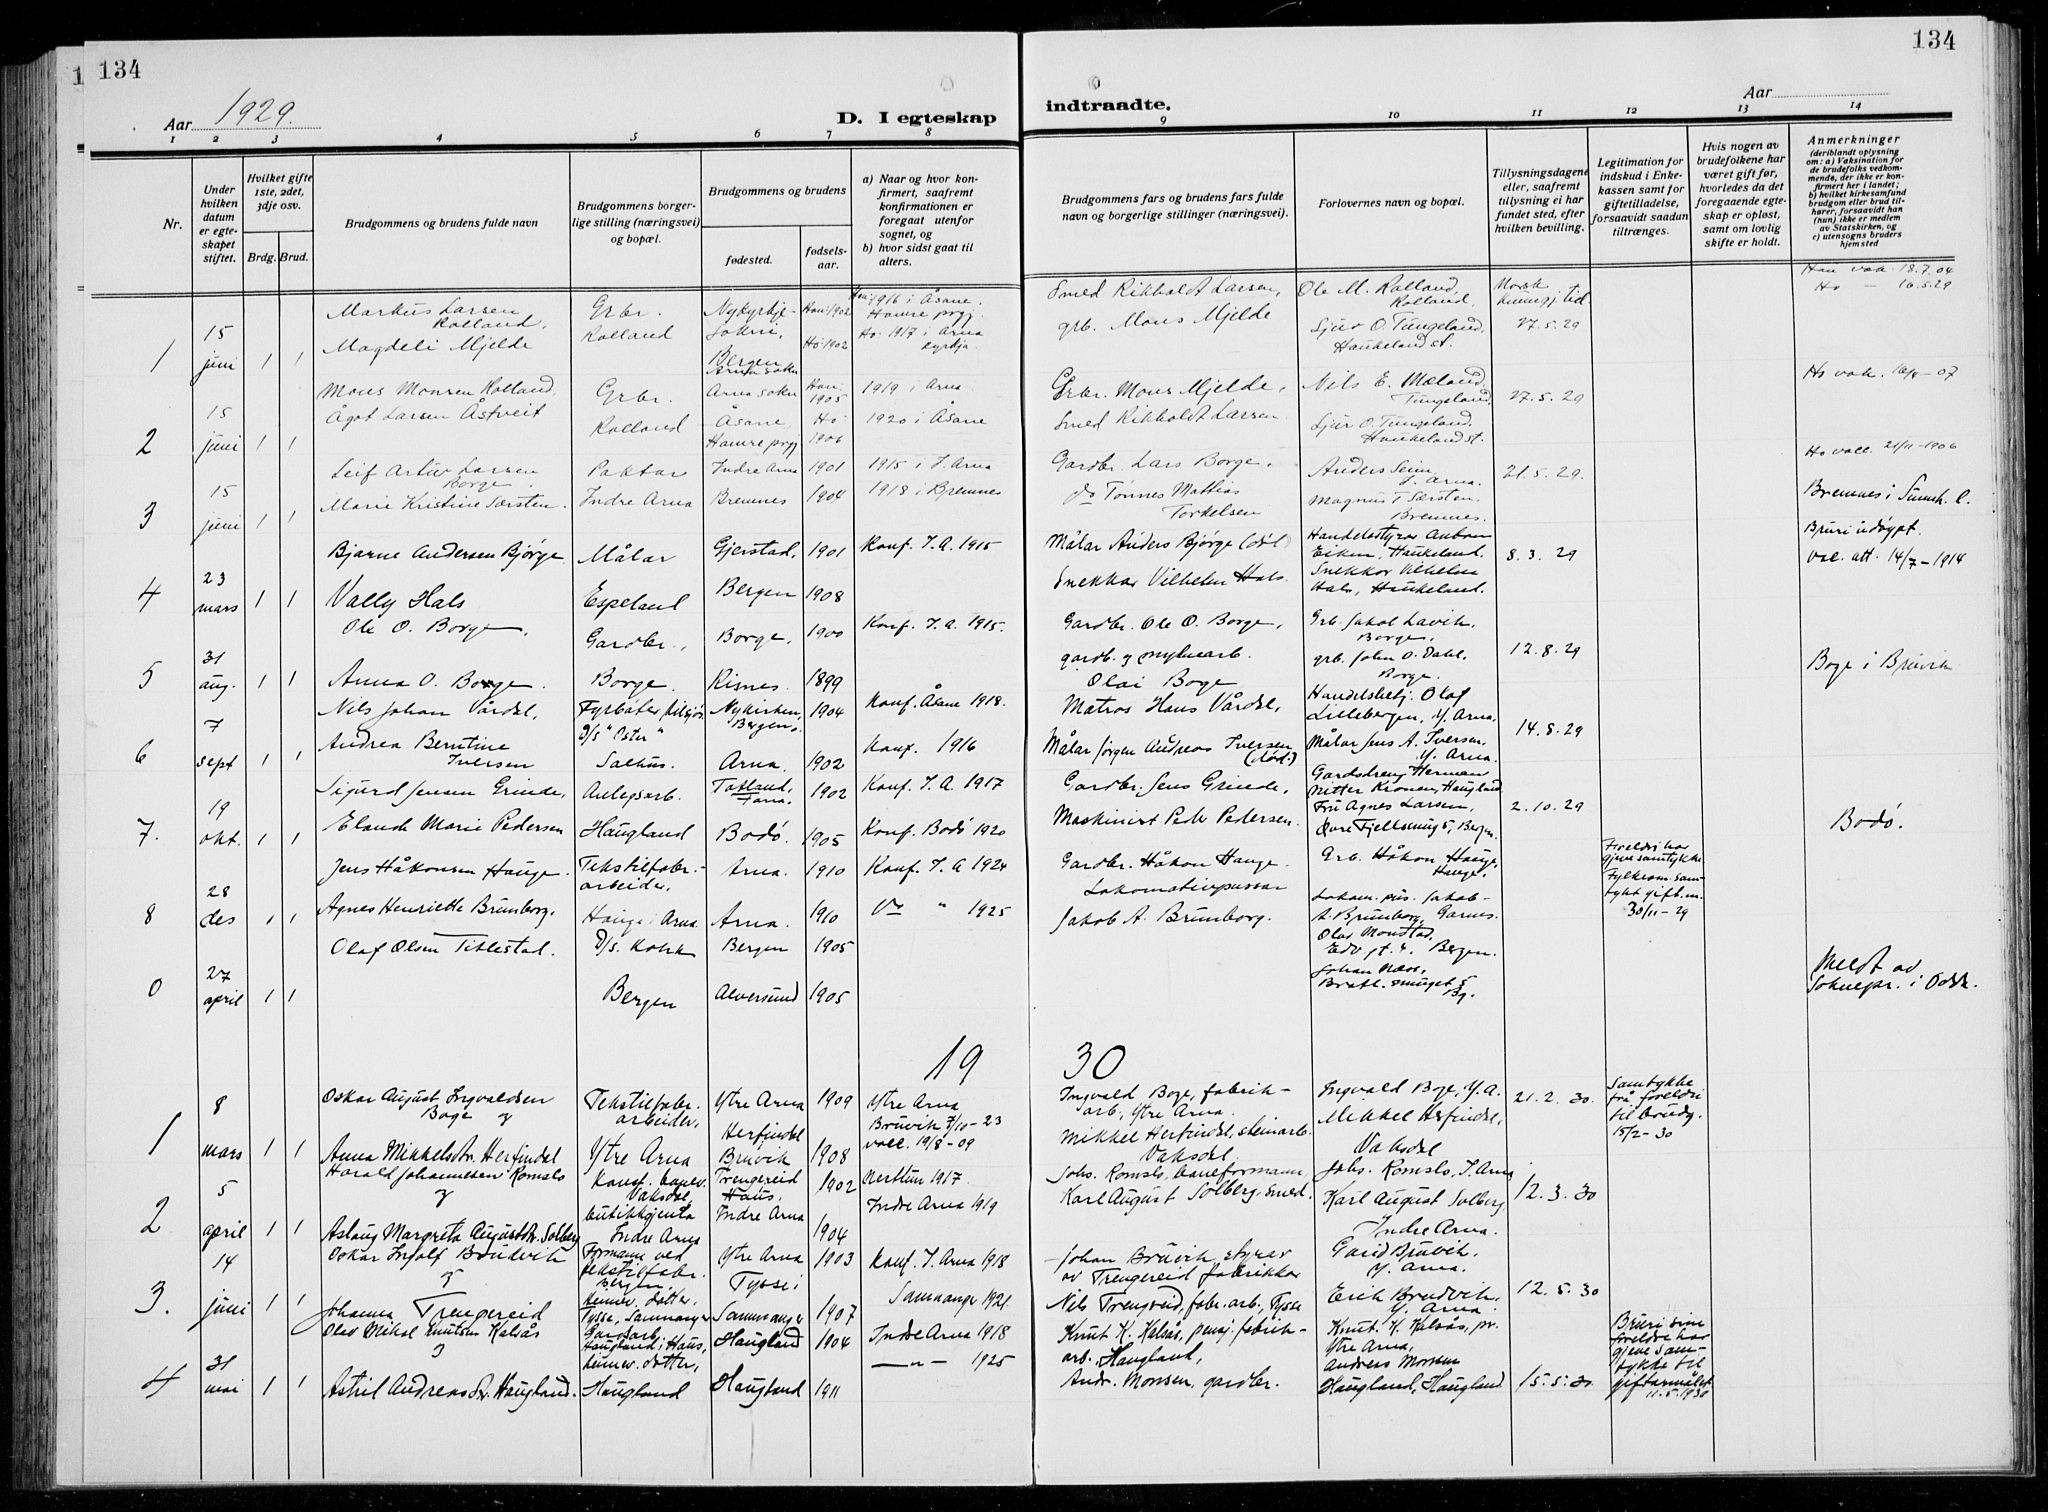 134
134
Aar 1929.
D. I egteskap
indtraadte.
Aar
1 2 3 4 5 6 7 8 9 10 11 12 13 14
Nr.
Under hvilken datum er egteskapet stiftet.
Hvilket gifte 1ste, 2det, 3dje osv.
Brdg. Brud.
Brudgommens og brudens fulde navn
Brudgommens borgerlige stilling (næringsvei) og bopæl.
Brudgommens og brudens
fødested.
fødselsaar.
a) Naar og hvor konfirmert, saafremt konfirmationen er foregaat utenfor sognet, og
b) hvor sidst gaat til alters.
Brudgommens fars og brudens fars fulde navn og borgerlige stillinger (næringsvei).
Forlovernes navn og bopæl.
Tillysningsdagene eller, saafremt tillysning ei har fundet sted, efter hvilken bevilling.
Legitimation for indskud i Enkekassen samt for giftetilladelse, forsaavidt saadan tiltrænges.
Hvis nogen av brudefolkene har været gift før, hvorledes da det foregaaende egteskap er opløst, samt om lovlig skifte er holdt.
Anmerkninger
(deriblandt oplysning om: a) Vaksination for de brudefolks vedkommende, der ikke er konfirmert her i landet; b) hvilket kirkesamfund brudgom eller brud tilhører, forsaavidt han (hun) ikke er medlem av Statskirken, og c) utensogns bruders hjemsted
1 15 juni 1 1
Markus Larsen Rolland.
Magdeli Mjelde
Grbr. Rolland
Nykyrkje-sokni, Bergen
Arna sokn
Han: 1902
Ho: 1902
Han: 1916 i Åsane. Hamre prgj.
Ho: 1917 i Arna kyrkja
Smed Rikholdt Larsen,
grb. Mons Mjelde
Ole M. Rolland, Rolland,
Sjur O. Tungeland, Haukeland st.
Norsk kunngj. tid
27.5.29
Han vak. 18.7.04
Ho — 16.5.29
2 15 juni 1 1
Mons Monsen Rolland
Ågot Larsen Åstveit
Grbr. Rolland
Arna sokn
Åsane, Hamre prgj
Han: 1905
Ho: 1906
1919 i Arna
1920 i Åsane
Grbr. Mons Mjelde,
Smed Rikholdt Larsen
Nils E. Mæland, Tungeland,
Sjur O. Tungeland, Haukeland st.
27.5.29
3 15 juni 1 1
Leif Artur Larsen Borge.
Marie Kristine Sørsten.
Paktar
Indre Arna
Indre Arna 1901
Bremnes 1904
1915 i I. Arna
1918 i Bremnes
Gardbr. Lars Borge,
do Tønnes Mattias Torkelsen
Anders Seim, I. Arna.
Magnus T. Sørsten. Bremnes.
21.5.29.
Ho vacc. 21/11-1906
Bremnes i Sunnh. l.
4 23 mars 1 1
Bjarne Andersen Bjørge
Vally Hals
Målar
Espeland
Gjerstad, 1901
Bergen 1908
Konf. I.A. 1915
Målar Anders Bjørge (død)
Snekkar Vilhelm Hals.
Eiken, Haukeland.
Snekkar Vilhelm Hals, Haukeland.
8.3.29
Bruri udøypt.
vac. att. 14/7-1914
5 31 aug. 1 1
Ole O. Borge,
Anna O. Boge.
Gardbr.,
Borge.
Borge, 1900
Risnes. 1899
Konf. I.A. 1915.
Gardbr. Ole O. Borge,
gardb. og mylnearb. Olai Boge
Grb. Jakob Lavik, Borge.
grb. John O. Dahl, Borge.
12.8.29
Boge i Bruvik
6 7 sept 1 1
Nils Johan Vårdal,
Andrea Berntine Iversen
D/s "Oster"
Salhus.
Nykirken, Bergen. 1904
Arna. 1902
Konf. Åsane 1918.
Konf. 1916
Matros Hans Vårdal,
Målar Jørgen Andreas Iversen (død.)
Handelsbetj. Olaf Lillebergen, Y. Arna.
Målar Jens A. Iversen, Y. Arna.
14.8.29
7. 19 okt. 1 1
Sigurd Jensen Grinde,
Marie Pedersen
Anlegsarb.
Haugland
1902
Bodø. 1905
Konf. I.A. 1917
Konf. Bodø 1920
Gardbr. Jens Grinde,
Maskinist Peder Pedersen.
Gardsdreng Herman
Haugland
Fru Agnes Larsen,
Øvre Fjellsmug 5, Bergen.
2.10.29
Bodø.
8 28 des 1 1
Jens Håkonsen Hauge.
Agnes Henriette Brunborg.
Tekstilfabr.-arbeider,
Hauge i Arna
Arna. 1910
Arna. 1910
Konf. I.A 1924
" 1925
Gardbr. Håkon Hauge.
Lokomotivpussar
Jakob A. Brunborg.
Grb. Håkon Hauge, Hauge.
Lokom. pus. Jakob A. Brunborg, Garnes.
Foreldri har gjeve samtykke.
Fylkesm. samtykt gift. m. 30/11-29
0 27 april 1 1
Olaf Olsen Titlestad.
D/s. Kokk
Bergen
Bergen 1905
Alversund 1905
Olav Monstad, Bergen.
Johan Næss,
Bratl. smuget 5 Bg.
Meldt av Soknepr. i Odda.
19 30
1 8 mars 1 1
Oskar August Ingvaldsen Boge og
Anna Mikkelsdtr. Herfindal
Tekstilfabr. arbeider,
Ytre Arna
Ytre Arna 1909
Herfindal Bruvik 1908
Ytre Arna
Bruvik 7/10-23
vacc. 19/8-09
Ingvald Boge, fabrik-arb, Ytre Arna.
Mikkel Herfindal, steinarb. Vaksdal.
Ingvald Boge, Y.A.
Mikkel Herfindal, Vaksdal
21.2.30.
Samtykke frå foreldri til brudg. 15/2-30
2 5 april 1 1
Harald Johannesen Romslo og
Aslaug Margreta Augustdtr. Solberg
Vaksdal,
butikkgjenta Indre Arna
Trengereid Haus. 1902
Indre Arna 1904
Nesttun 1917.
Indre Arna 1919
Johs. Romslo, baneformann
Karl August Solberg, smed.
Johs. Romslo, I. Arna
Karl August Solberg Indre Arna.
12.3.30
3. 14 juni 1 1
Oskar Ingolf Brudvik og
Johanna Trengereid
Formann ved tekstilfabr. Bergen
heimev. dotter, Tysse, Samnanger
Ytre Arna 1903
Tysse i Samnanger 1907
Konf. I. Arna 1918
Samnanger 1921.
Johan Bruvik, styrar av Trengereid fabrikkar
Nils Trengereid, fabr. arb., Tysse
Garid Bruvik, Y. Arna.
Erik Brudvik, Y. Arna.
12.5.30
4 31 mai 1 1
Olav Mikal Knutsen Kalsås og
Astrid Andreasdtr. Haugland.
Gardsarb. Haugland i Haus,
heimev. dotter, Haugland
Haugland 1904
Haugland 1911
Indre Arna 1918
—"— 1925
Knut K. Kalsås, pensj. fabrik-arb., Haugland,
Andr. Monsen, gardbr.
Knut. K. Kalsås, pr. Ytre Arna,
Andreas Monsen Haugland, Haugland
15.5.30
Bruri sine foreldre har gjeve samtykke til giftarmålet 11.5.1930